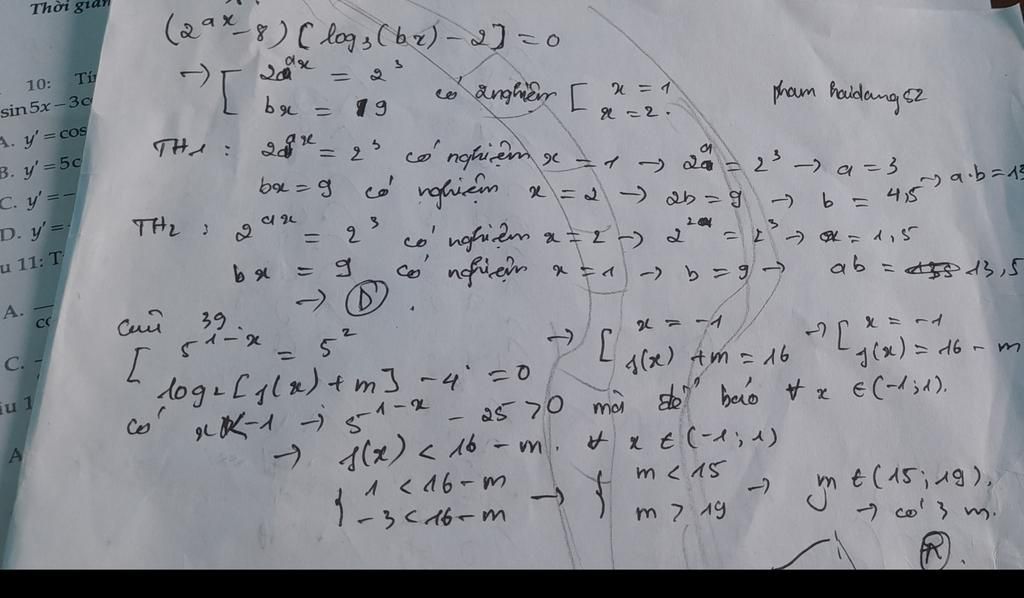 Thời gian
10: Tí
sin5x-3co
A. y' = cos
B. y' = 5c
C. y' = -
D. y' = -
u 11: T
A.
co
C.
iu 1
A
(2^{ax} - 8) [log₃(bx) - 2] = 0
→ [ 2^{ax} = 2³ có 2 nghiệm [ x = 1
bx = 9 x = 2.
pham haidang 52
TH1 : 2^{ax} = 2³ có nghiệm x = 1 → 2^{a} = 2³ → a = 3 → a.b = 13
bx = 9 có nghiệm x = 2 → 2b = 9 → b = 4,5
TH2 : 2^{ax} = 2³ có nghiệm x = 2 → 2^{2a} = 2³ → a = 1,5
bx = 9 có nghiệm x = 1 → b = 9 → ab = 13,5
→ (D).
câu 39
[ 5^{1-x} = 5² → [ x = -1 → [ x = -1
log₂[f(x) + m] - 4 = 0 f(x) + m = 16 f(x) = 16 - m
có x -1 → 5^{1-x} - 25 > 0 mà báo ∀ x ∈ (-1; 1).
→ f(x) < 16 - m. ∀ x ∈ (-1; 1)
{ 1 < 16 - m → { m < 15 → m ∈ (15; 19).
-3 < 16 - m m > 19 → có 3 m.